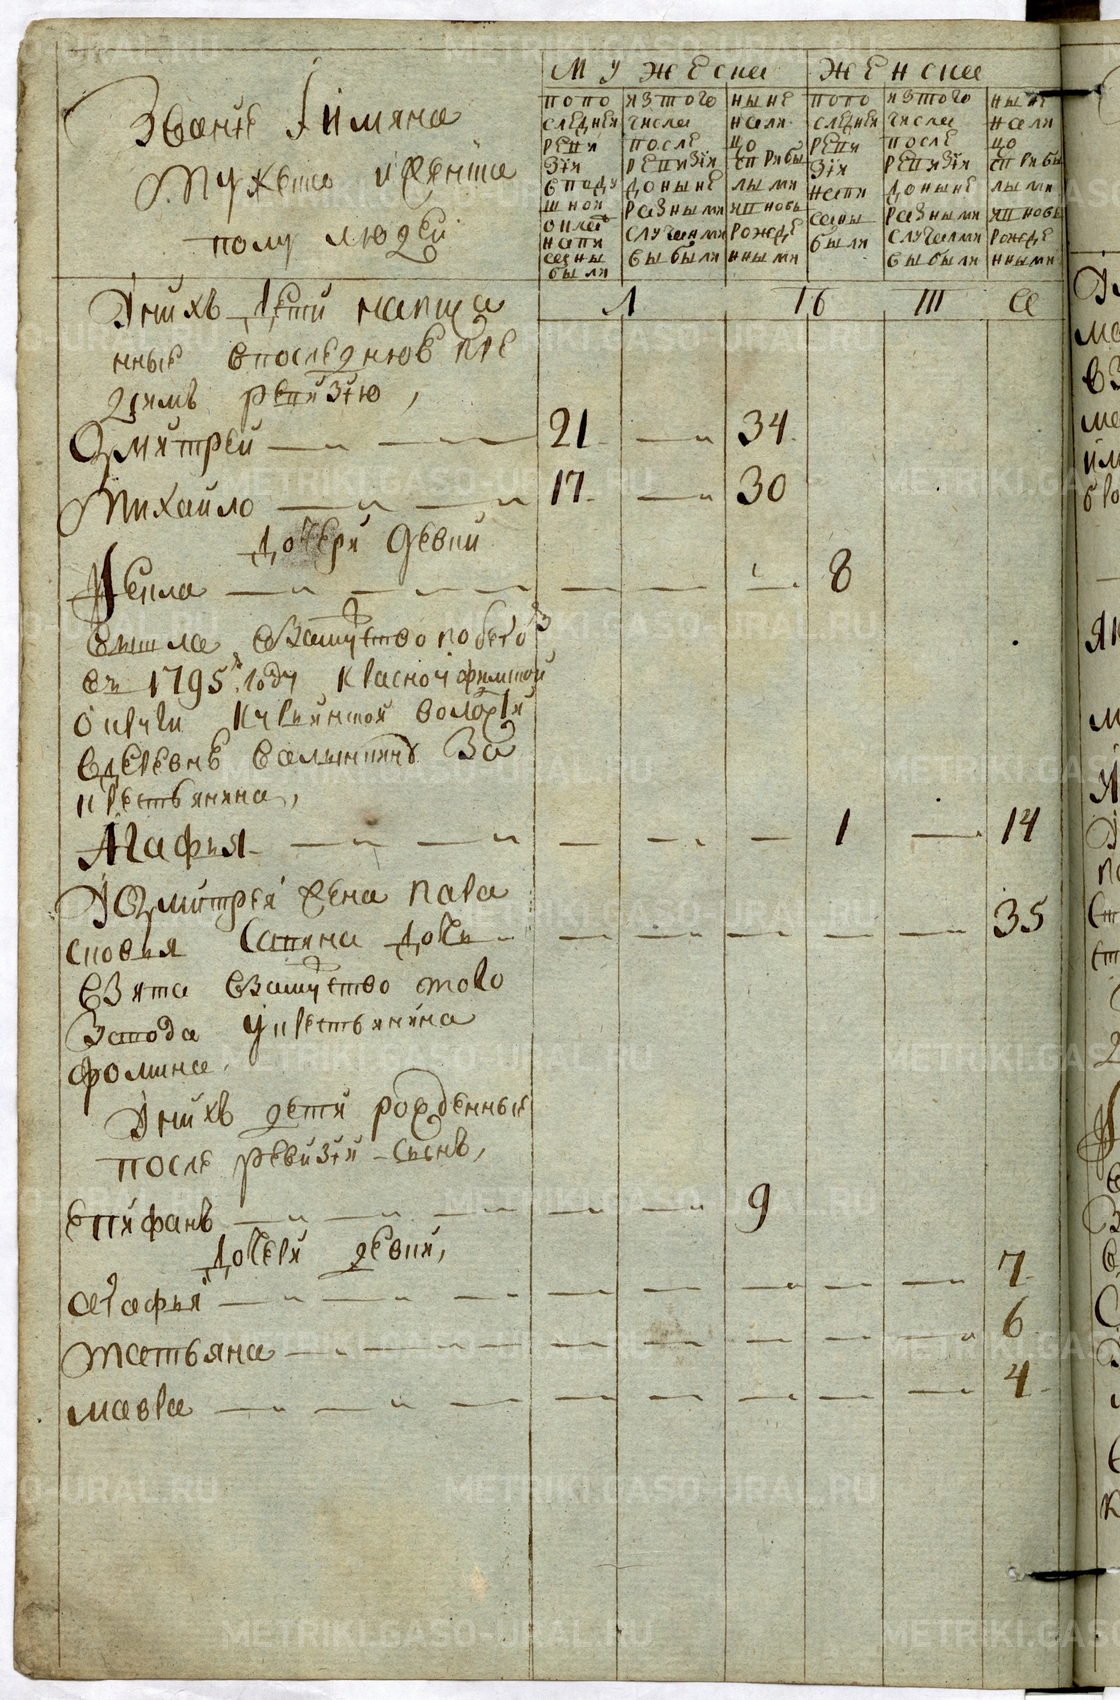 МУЖЕСКА
ЖЕНСКА
Званiе Имяна
Мужеска и женска
полу людей
попо
следней
реви
зiи
в поду
шной
оклад
напи
саны
были
изтого
числа
после
ревизiи
доныне
разными
случаями
выбыли
ныне
нали
цо
сприбы
лыми
ип новь
рожде
нными
попо
следней
реви
зiи
напи
саны
были
изтого
числа
после
ревизiи
доныне
разными
случаями
выбыли
ныне
нали
цо
сприбы
лыми
ип новь
рожде
нными
У нихъ дети написа
нные впоследнюю пре
димъ ревизiю,
Дмитреи 21 34
Михаило 17 30
дочери девки
Фекла 8
вышла взамужство побегоу
въ 1795м. году Красноуфимской
округи волости
вдеревне за
крестьянина,
Агафья 1 14
У Дмитрея жена пара
сковья дочь 35
взята взамужство того
завода у крестьянина
фомина.
У нихъ дети рожденныя
после ревизiи сынъ,
епифанъ 9
дочери девки,
агафья 7
татьяна 6
мавра 4
METRIKI.GASO-URAL.RU